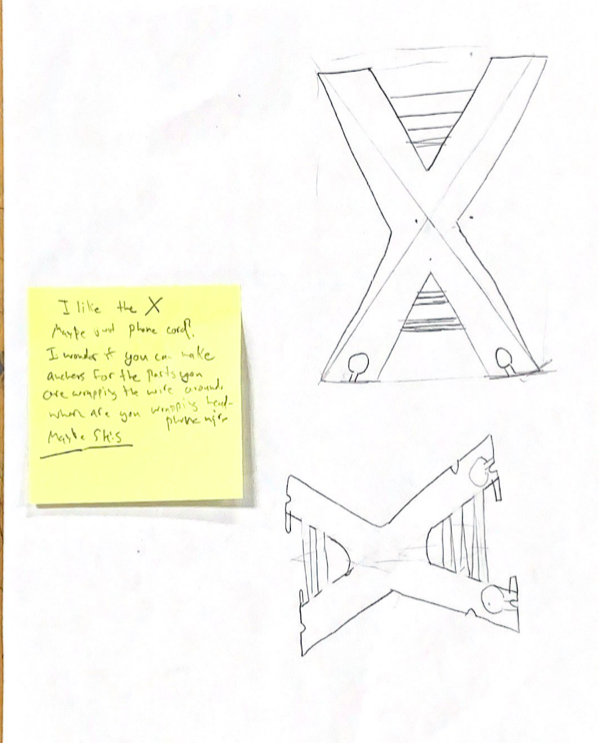 I like the X
Maybe just phone cord?
I wonder if you can make
anchors for the parts you
are wrapping the wire around.
where are you wrapping head-
phone wire
Maybe Skis